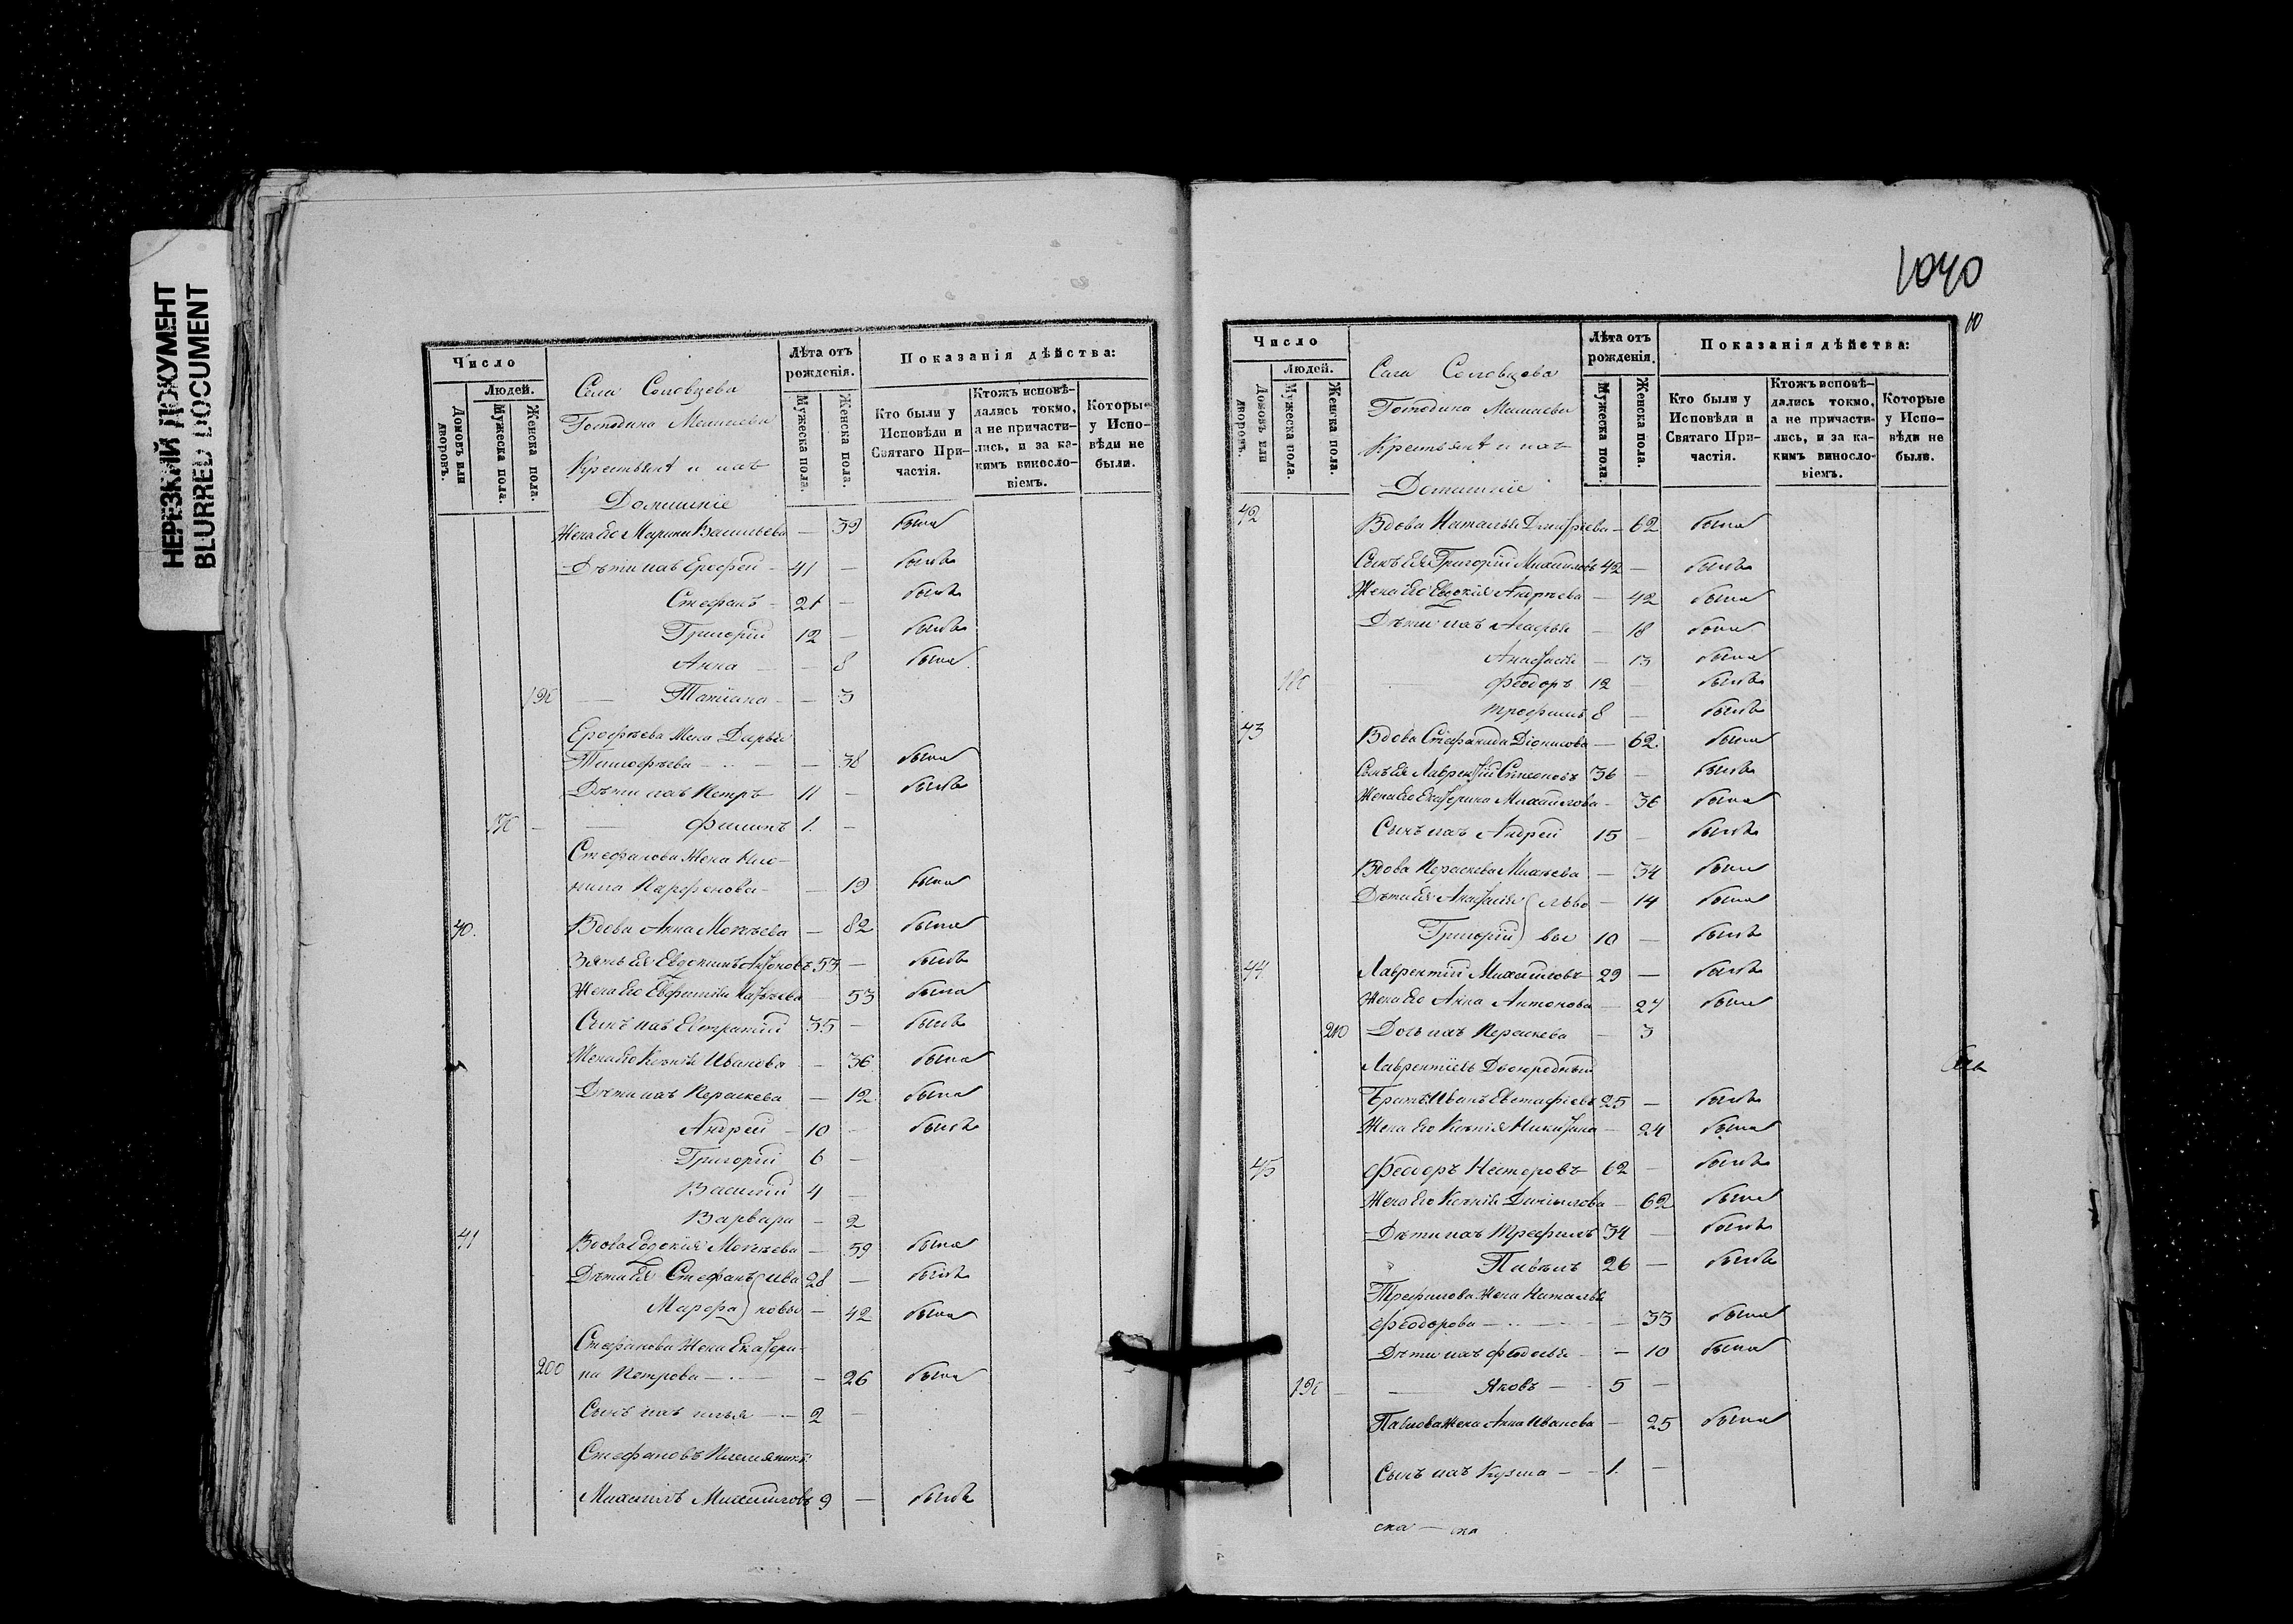 НЕРЕЗКИЙ ДОКУМЕНТ
BLURRED DOCUMENT
Число
Людей.
Домовъ или дворовъ.
Мужеска пола.
Женска пола.
Села Соловцова
Господина
Крестьяне и ихъ
Домашніе
Лѣта отъ рожденія.
Мужеска пола.
Женска пола.
Показанія дѣйства:
Кто были у Исповѣди и Святаго При-частія.
Ктожъ исповѣ-дались токмо, а не причасти-лись, и за ка-кимъ винословіемъ.
Которые у Испо-вѣди не были.
Жена Его Марина Васильева — 39 была
Дѣти ихъ Ерофей 41 — былъ
Стефанъ 21 — былъ
Григорій 12 — былъ
Анна — 8 была
Татіана — 3
Ерофѣева Жена Дарья
Тимофѣева — 38 была
Дѣти ихъ Петръ 11 — былъ
Филипъ 1 —
Стефанова Жена
Парфенова — 19 была
40. Вдова Анна Мокѣева — 82 была
Зять Ея Евдокимъ Антоновъ 53 — былъ
Жена Его — 53 была
Сынъ ихъ Евстратій 35 — былъ
Жена Его Ксенія Иванова — 36 была
Дѣти ихъ Параскева — 12 была
Андрей 10 — былъ
Григорій 6 —
Василій 4 —
Варвара — 2
41 Вдова Евдокія Мокѣева — 59 была
Дѣти Ея Стефанъ Ива 28 — былъ
Марфа новы — 42 была
Стефанова Жена Екатери-
200 на Петрова — 26 была
Сынъ ихъ Илья 2 —
Стефановъ Племянникъ
Михаилъ Михайловъ 9 — былъ
1040
10
Число
Людей.
Домовъ или дворовъ.
Мужеска пола.
Женска пола.
Села Соловцова
Господина
Крестьяне и ихъ
Домашніе
Лѣта отъ рожденія.
Мужеска пола.
Женска пола.
Показанія дѣйства:
Кто были у Исповѣди и Святаго При-частія.
Ктожъ исповѣ-дались токмо, а не причасти-лись, и за ка-кимъ винословіемъ.
Которые у Испо-вѣди не были.
42 Вдова Наталья Дмитріева — 62 была
Сынъ Ея Григорій Михайловъ 42 — былъ
Жена Его Евдокія Андреева — 42 была
Дѣти ихъ Агафья — 18 была
Анастасія — 13 была
Феодоръ 12 — былъ
Трофимъ 8 — былъ
43 Вдова Стефанида Діонисова — 62 была
Сынъ Ея Лаврентій Симеоновъ 36 — былъ
Жена Его Екатерина Михайлова — 36 была
Сынъ ихъ Андрей 15 — былъ
Вдова Параскева — 34 была
Дѣти Ея Анастасія Льво — 14 была
Григорій вы 10 — былъ
44 Лаврентій Михайловъ 29 — былъ
Жена Его Анна Антонова — 27 была
210 Дочь ихъ Параскева — 3
Лаврентіевъ Двоюродный
Братъ Иванъ Евстафіевъ 25 — былъ
Жена Его Ксенія Никитина — 24 была
45 Феодоръ Нестеровъ 62 — былъ
Жена Его Ксенія Данилова — 62 была
Дѣти ихъ Трофимъ 34 — былъ
Павелъ 26 — былъ
Трофимова Жена Наталья
Феодорова — 33 была
Дѣти ихъ Феодосья — 10 была
Яковъ 5 —
Павлова Жена Анна Иванова — 25 была
Сынъ ихъ Кузма 1 —